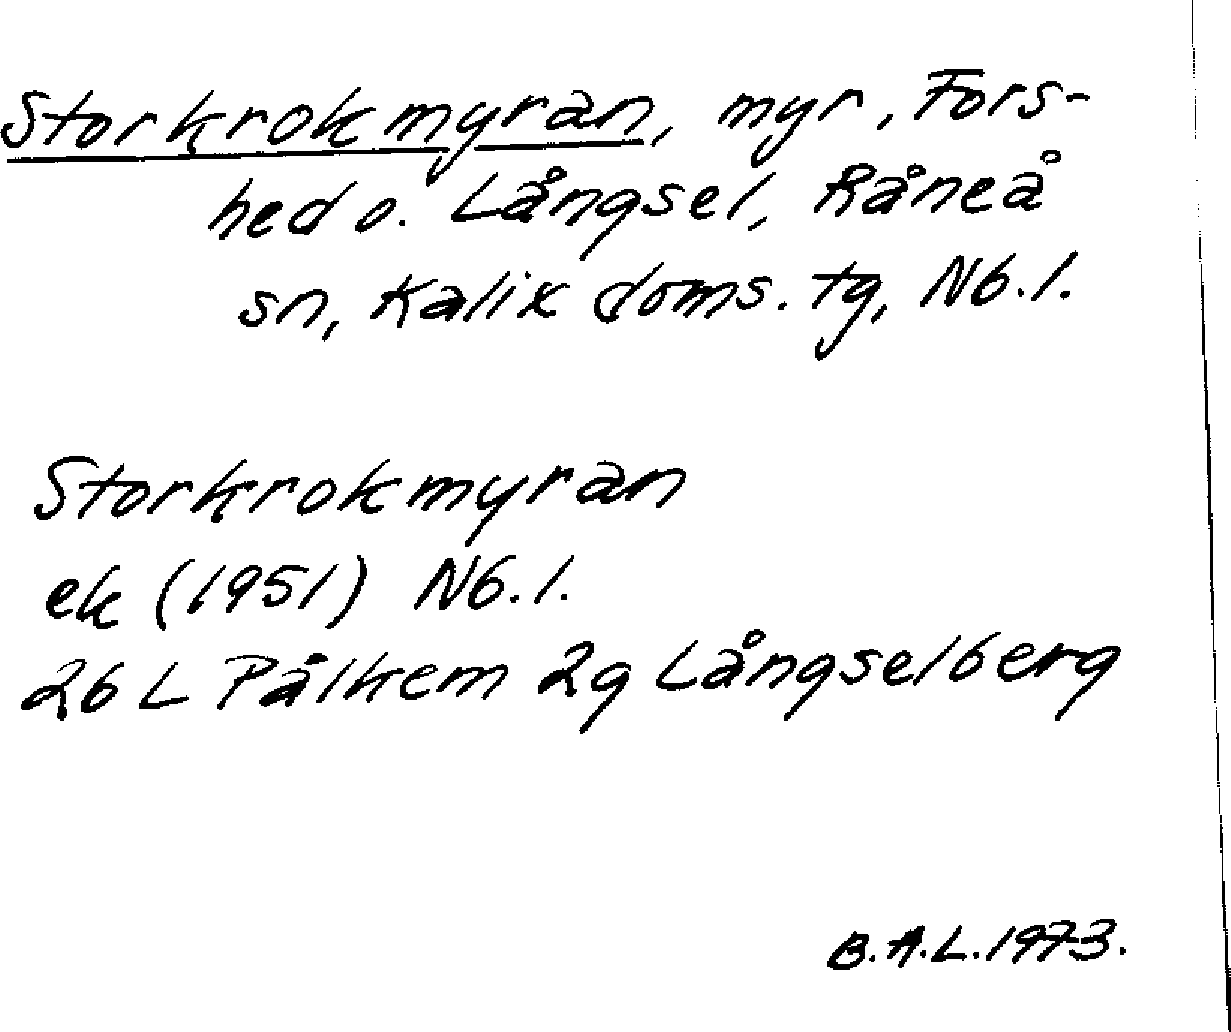 Storkrokmyran, myr, Fors-
hed o. Långsel, Råneå
sn, Kalix doms. tg, Nb. l.
Storkrokmyran
ek (1951) Nb. l.
26 L Pålkem 2g Långselberg
B.A.L. 1973.